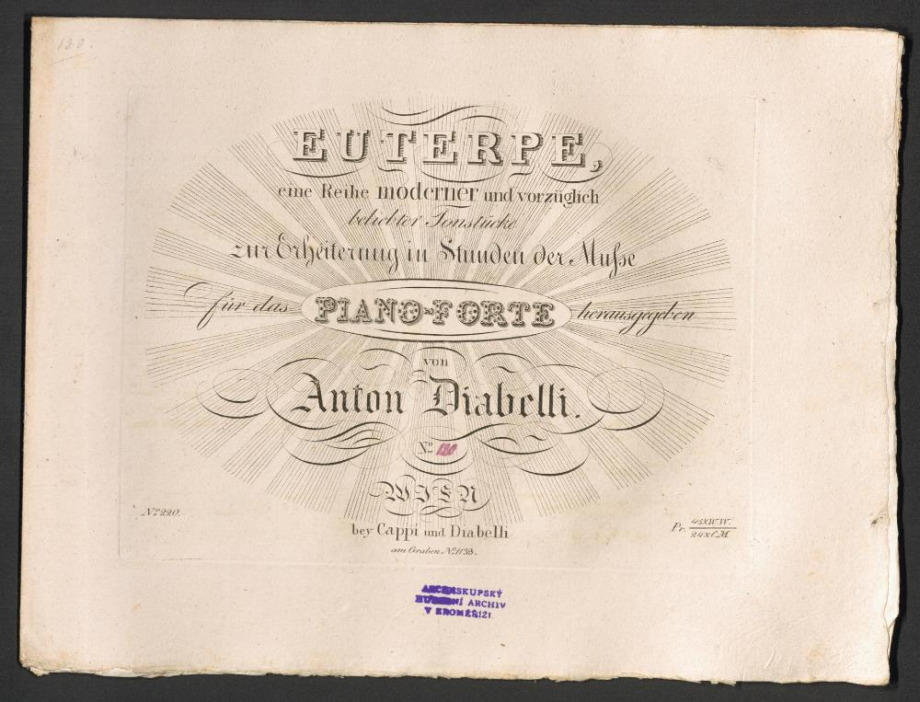 120.
EUTERPE,
eine Reihe moderner und vorzüglich
beliebter Tonstücke
zur Erheiterung in Stunden der Muſse
für das PIANO-FORTE herausgegeben
von
Anton Diabelli.
No. 120
WIEN
No. 220.
bey Cappi und Diabelli
am Graben No. 1133.
Pr. 45x W.W.
24x C.M.
ARCIBISKUPSKÝ
HUDEBNÍ ARCHIV
V KROMĚŘÍŽI